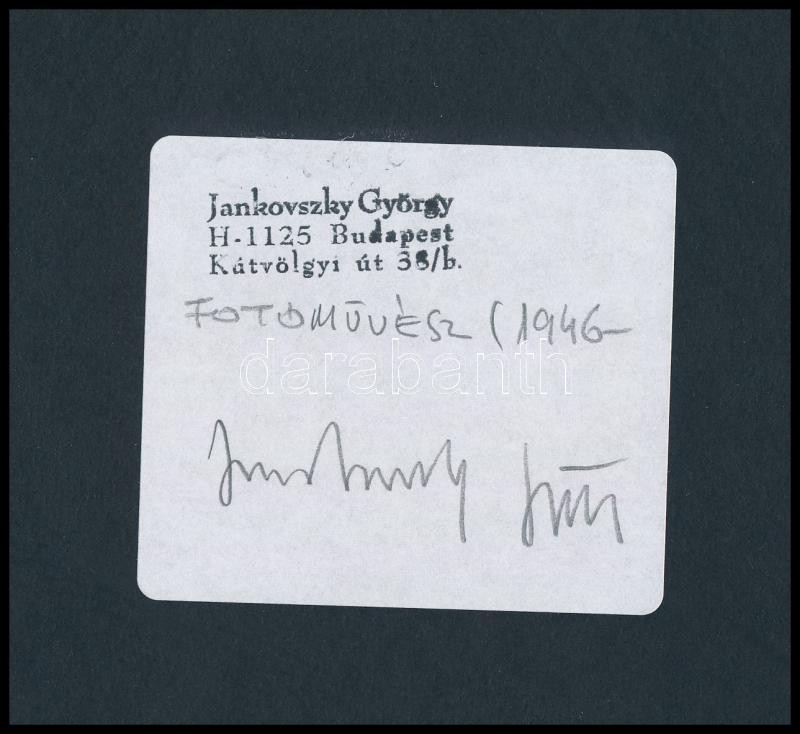 Jankovszky György
H-1125 Budapest
Kátvölgyi út 38/b.
FOTOMŰVÉSZ (1946-
darabanth